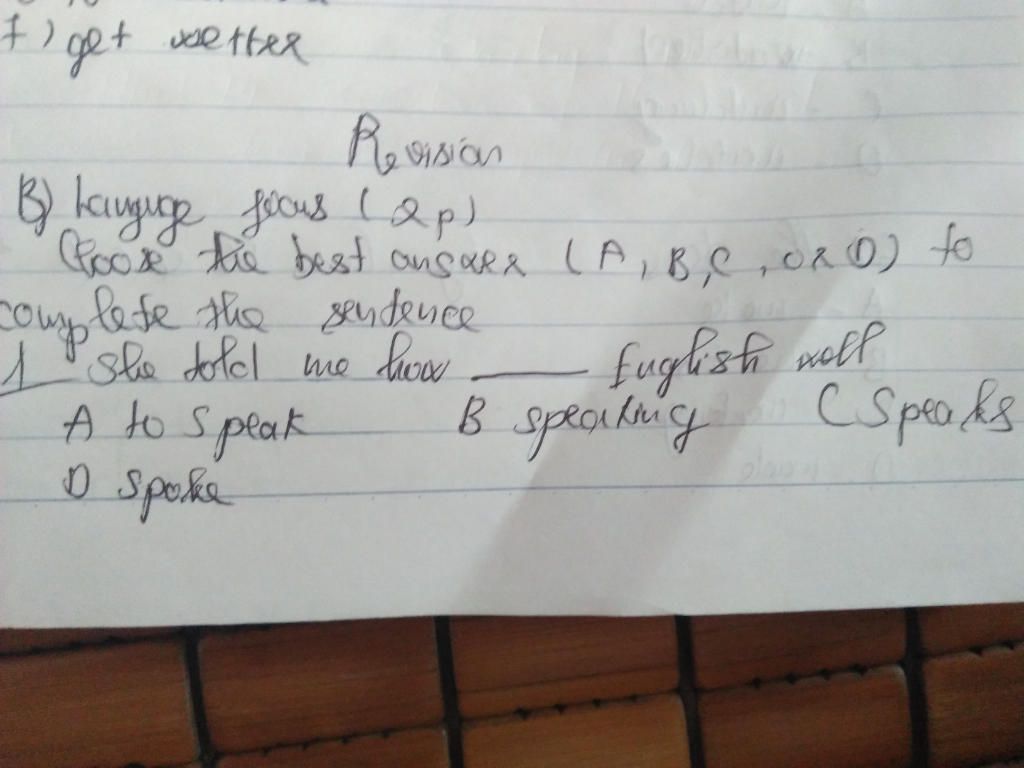 f) get wetter
Revision
B) Languge focus (2p)
Choose the best answer (A, B, C, or D) to
complete the sentence
1 She told me how ______ English well
A to speak B speaking C Speaks
D spoke